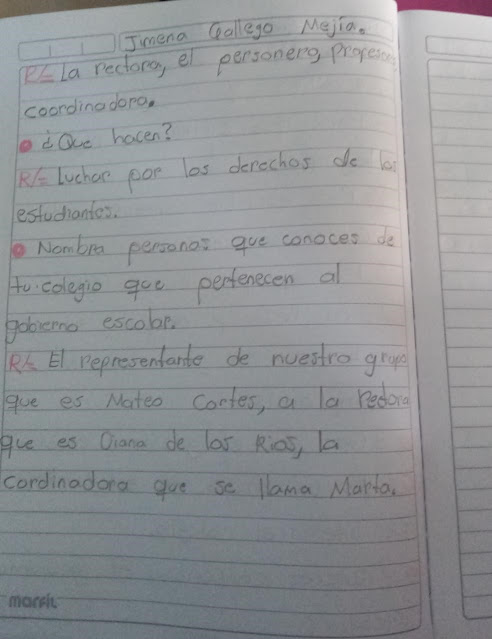 Jimena Gallego Mejía.
R/= La rectora, el personero, Profesores
coordinadora.
¿Que hacen?
R/= Luchar por los derechos de los
estudiantes.
Nombra personas que conoces de
tu colegio que pertenecen al
gobierno escolar.
R/= El representante de nuestro grupo
que es Mateo Cortes, a la Rectora
que es Diana de los Rios, la
cordinadora que se llama Marta.
marfil